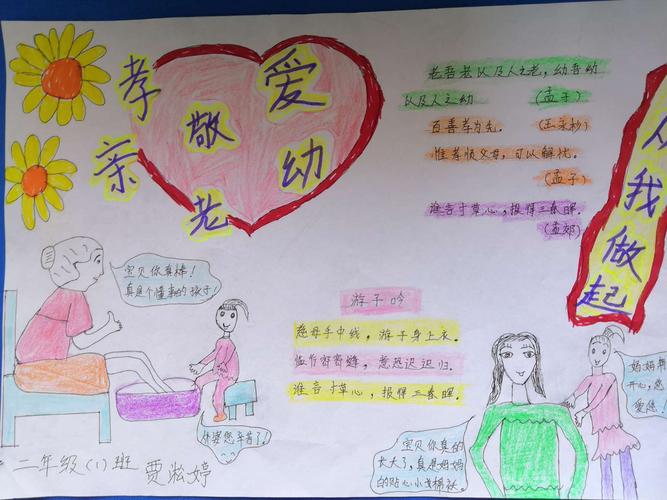 孝亲
敬老
爱幼
从我做起
老吾老以及人之老，幼吾幼
以及人之幼 （孟子）
百善孝为先。（王永彬）
惟孝顺父母，可以解忧。
（孟子）
谁言寸草心，报得三春晖。
（孟郊）
宝贝你真棒！
真是个懂事的孩子！
外婆您辛苦了！
游子吟
慈母手中线，游子身上衣。
临行密密缝，意恐迟迟归。
谁言寸草心，报得三春晖。
妈妈
开心，您
爱您！
宝贝你真的
长大了，真是妈妈
的贴心小棉袄。
二年级（1）班 贾淞婷